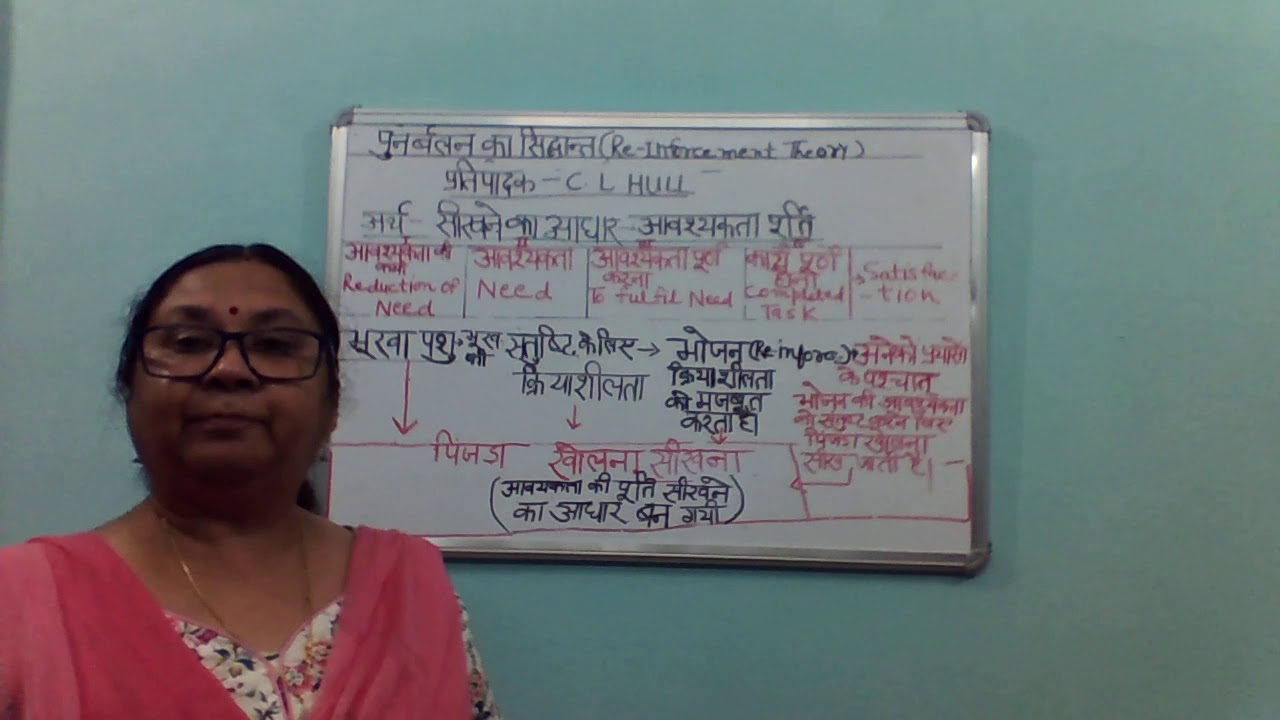 पुनर्बलन का सिद्धान्त (Re-Inforcement Theory)
प्रतिपादक - C. L HULL
अर्थ - सीखने का आधार - आवश्यकता पूर्ति
आवश्यकता की कमी
Reduction of
Need
आवश्यकता
Need
आवश्यकता पूर्ण
करना
To fulfil Need
कार्य पूर्ण
होना
Completed
Task
Satisfac-
-tion
भूखा पशु - भूख की संतुष्टि के लिए → भोजन
क्रियाशीलता
क्रियाशीलता
को मजबूत
करता है।
अनेको प्रयासो
के पश्चात
भोजन की आवश्यकता
को संतुष्ट करने लिए
पिंजरा खोलना
सीख जाता है।
पिंजडा खोलना सीखना
(आवयकता की पूर्ति सीखने
का आधार बन गयी)